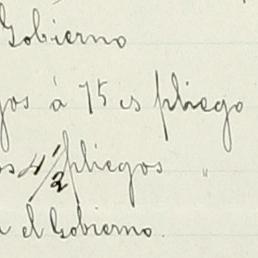 Gobierno
gos á 75 cs pliego
os 4 1/2 pliegos "
el Gobierno.